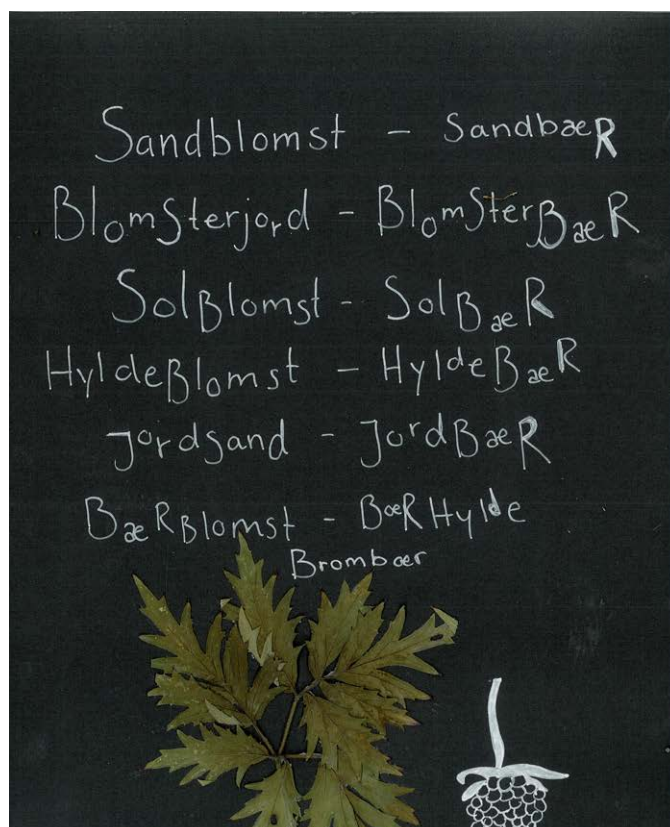 Sandblomst - SandbaeR
BlomSterjord - BlomSterBaeR
SolBlomst - SolBaeR
HyldeBlomst - HyldeBaeR
Jordsand - JordBaeR
BaeRBlomst - BaeRHylde
Brombær